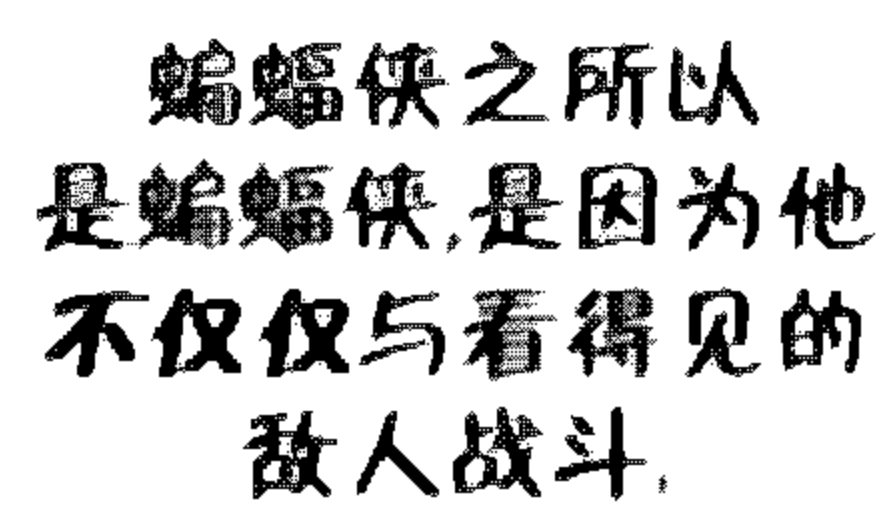 蝙蝠侠之所以
是蝙蝠侠,是因为他
不仅仅与看得见的
敌人战斗,